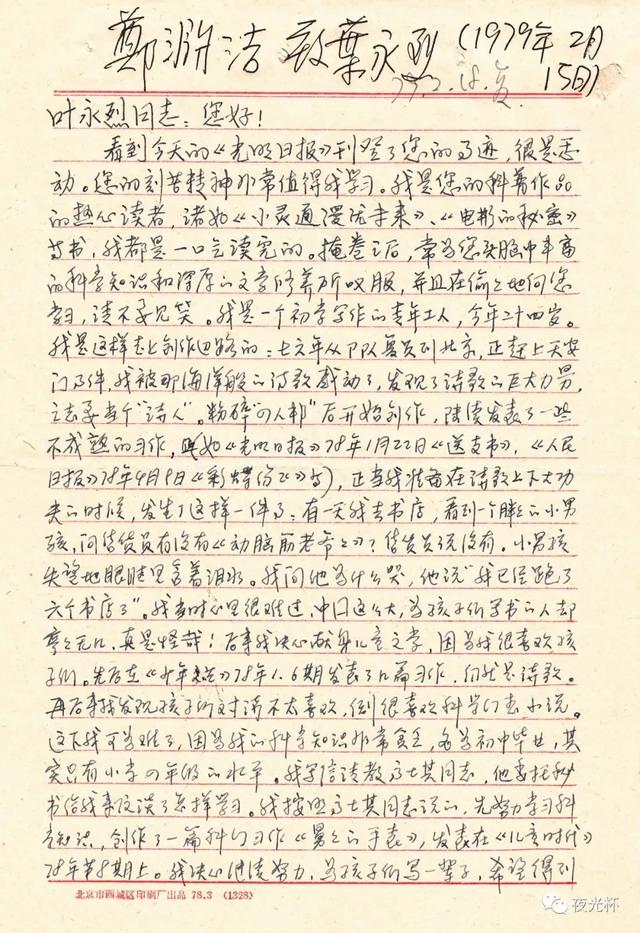 鄭渊洁 致葉永烈 (1979年2月
15日)
79.2.18.复
叶永烈同志：您好！
看到今天的《光明日报》刊登了您的事迹，很是感
动。您的刻苦精神非常值得我学习。我是您的科普作品
的热心读者，诸如《小灵通漫游未来》、《电影的秘密》
等书，我都是一口气读完的。掩卷之后，常为您头脑中丰富
的科学知识和深厚的文学修养所叹服，并且在偷偷地向您
学习，请不要见笑。我是一个初学写作的青年工人，今年二十四岁。
我是这样走上创作道路的：七六年从部队复员到北京，正赶上天安
门事件，我被那海洋般的诗歌感动了，发现了诗歌的巨大力量，
立志要当个“诗人”。粉碎“四人邦”后开始创作，陆续发表了一些
不成熟的习作，如《光明日报》78年1月22日《送支书》，《人民
日报》78年4月9日《彩蝶》等），正当我准备在诗歌上下大功
夫的时候，发生了这样一件事：有一天我去书店，看到一个胖胖的小男
孩，问售货员有没有《动脑筋老爷爷》？售货员说没有。小男孩
失望地眼睫里含着泪水。我问他为什么哭，他说“我已经跑了
六个书店了”。我当时心里很难过，中国这么大，为孩子们写书的人却
寥寥无几，真是怪哉！后来我决心献身儿童文学，因为我很喜欢孩
子们。先后在《少年》78年1.6期发表了几篇习作，仍然是诗歌。
再后来我发现孩子们对诗不太喜欢，倒很喜欢科学幻想小说。
这下我可为难了，因为我的科学知识非常贫乏，名为初中毕业，其
实只有小学四年级的水平。我写信请教高士其同志，他委托秘
书给我来信谈了怎样学习。我按照高士其同志说的，先努力学习科
学知识，创作了一篇科幻习作《舅舅的手表》，发表在《儿童时代》
78年第8期上。我决心继续努力，为孩子们写一辈子，希望得到
北京市西城区印刷厂出品 78.3 (1328)
夜光杯